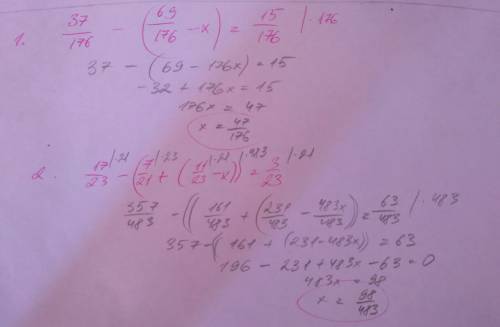 1. 37/176 - (69/176 - x) = 15/176 | · 176
37 - (69 - 176x) = 15
-32 + 176x = 15
176x = 47
x = 47/176
2. 17/23 |·21 - (7/21 |·23 + (11/23 |·21 - x)) |·483 = 3/23 |·21
357/483 - ((161/483 + (231/483 - 483x/483)) = 63/483 | · 483
357 - (161 + (231 - 483x)) = 63
196 - 231 + 483x - 63 = 0
483x = 98
x = 98/483